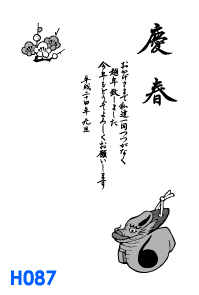 慶春
おかげさまで私達一同つつがなく
越年致しました
今年もどうぞよろしくお願いします
平成二十四年 元旦
H087